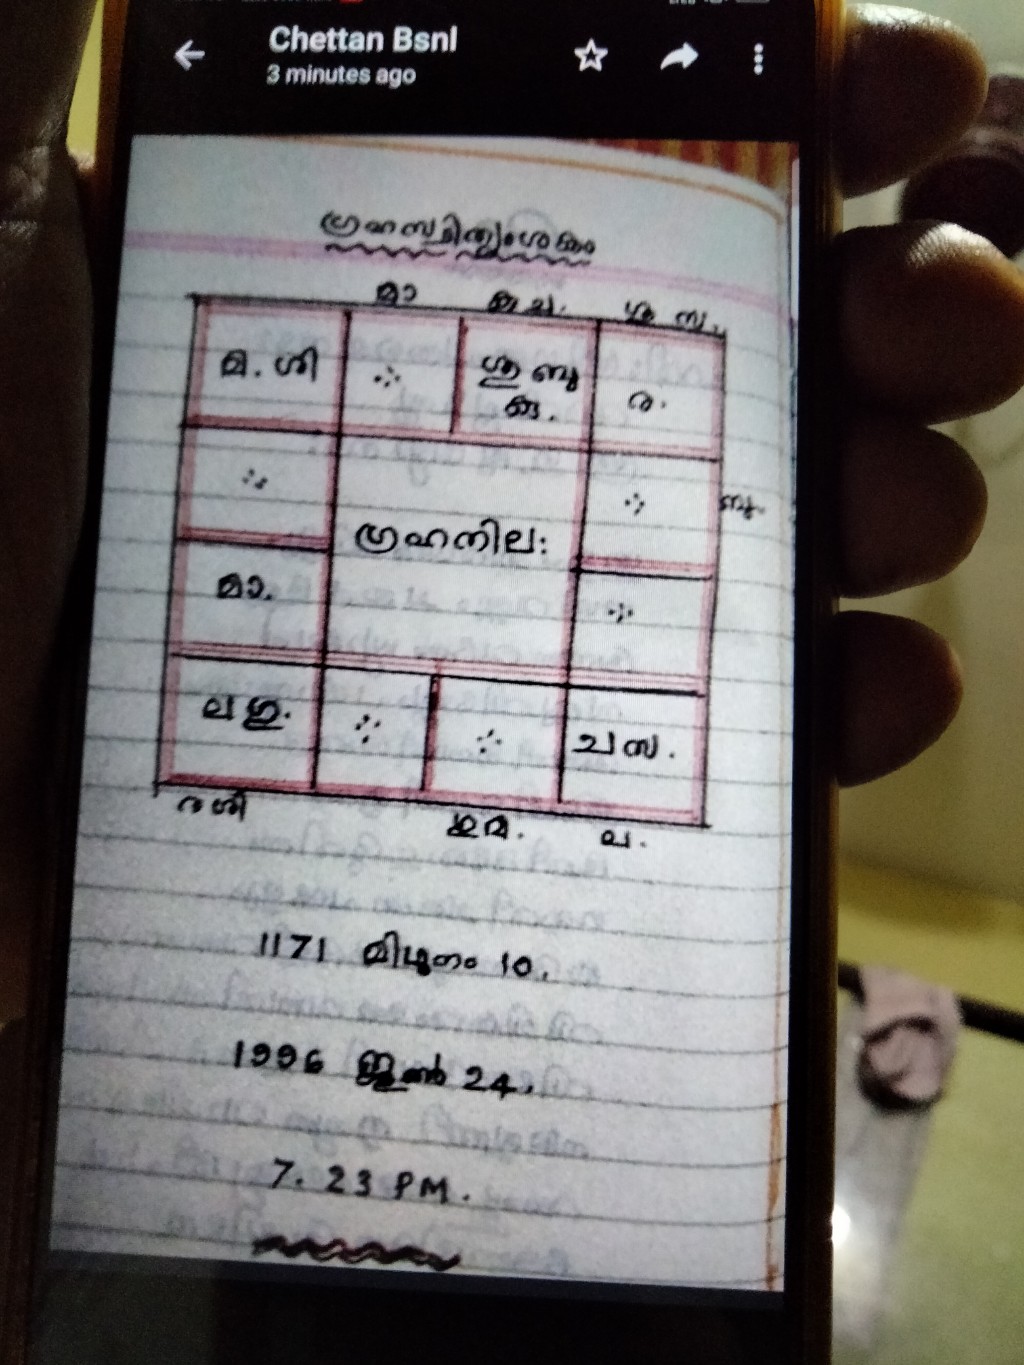 Chettan Bsnl
3 minutes ago
ഗ്രഹസ്ഥിത്യംശകം
മാ കുച. ശു സ.
മ. ശി
ശു ബു
കു.
ര.
ബു.
ഗ്രഹനില:
മാ.
ല ഗു.
ച സ.
ര ശി ഗു മ. ല.
1171 മിഥുനം 10.
1996 ജൂൺ 24.
7. 23 PM.